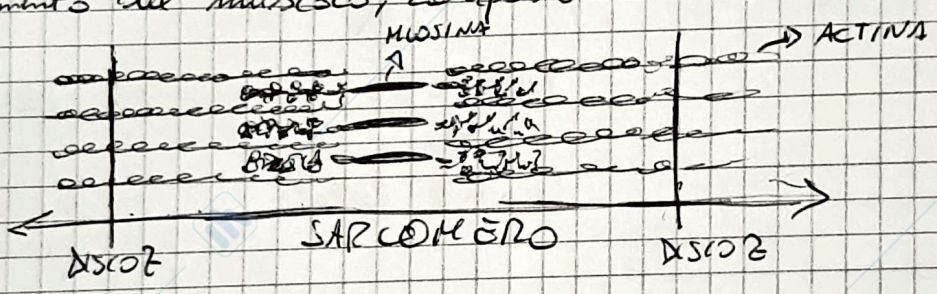 MIOSINA
ACTINA
SARCOMERO
DISCO Z
DISCO Z